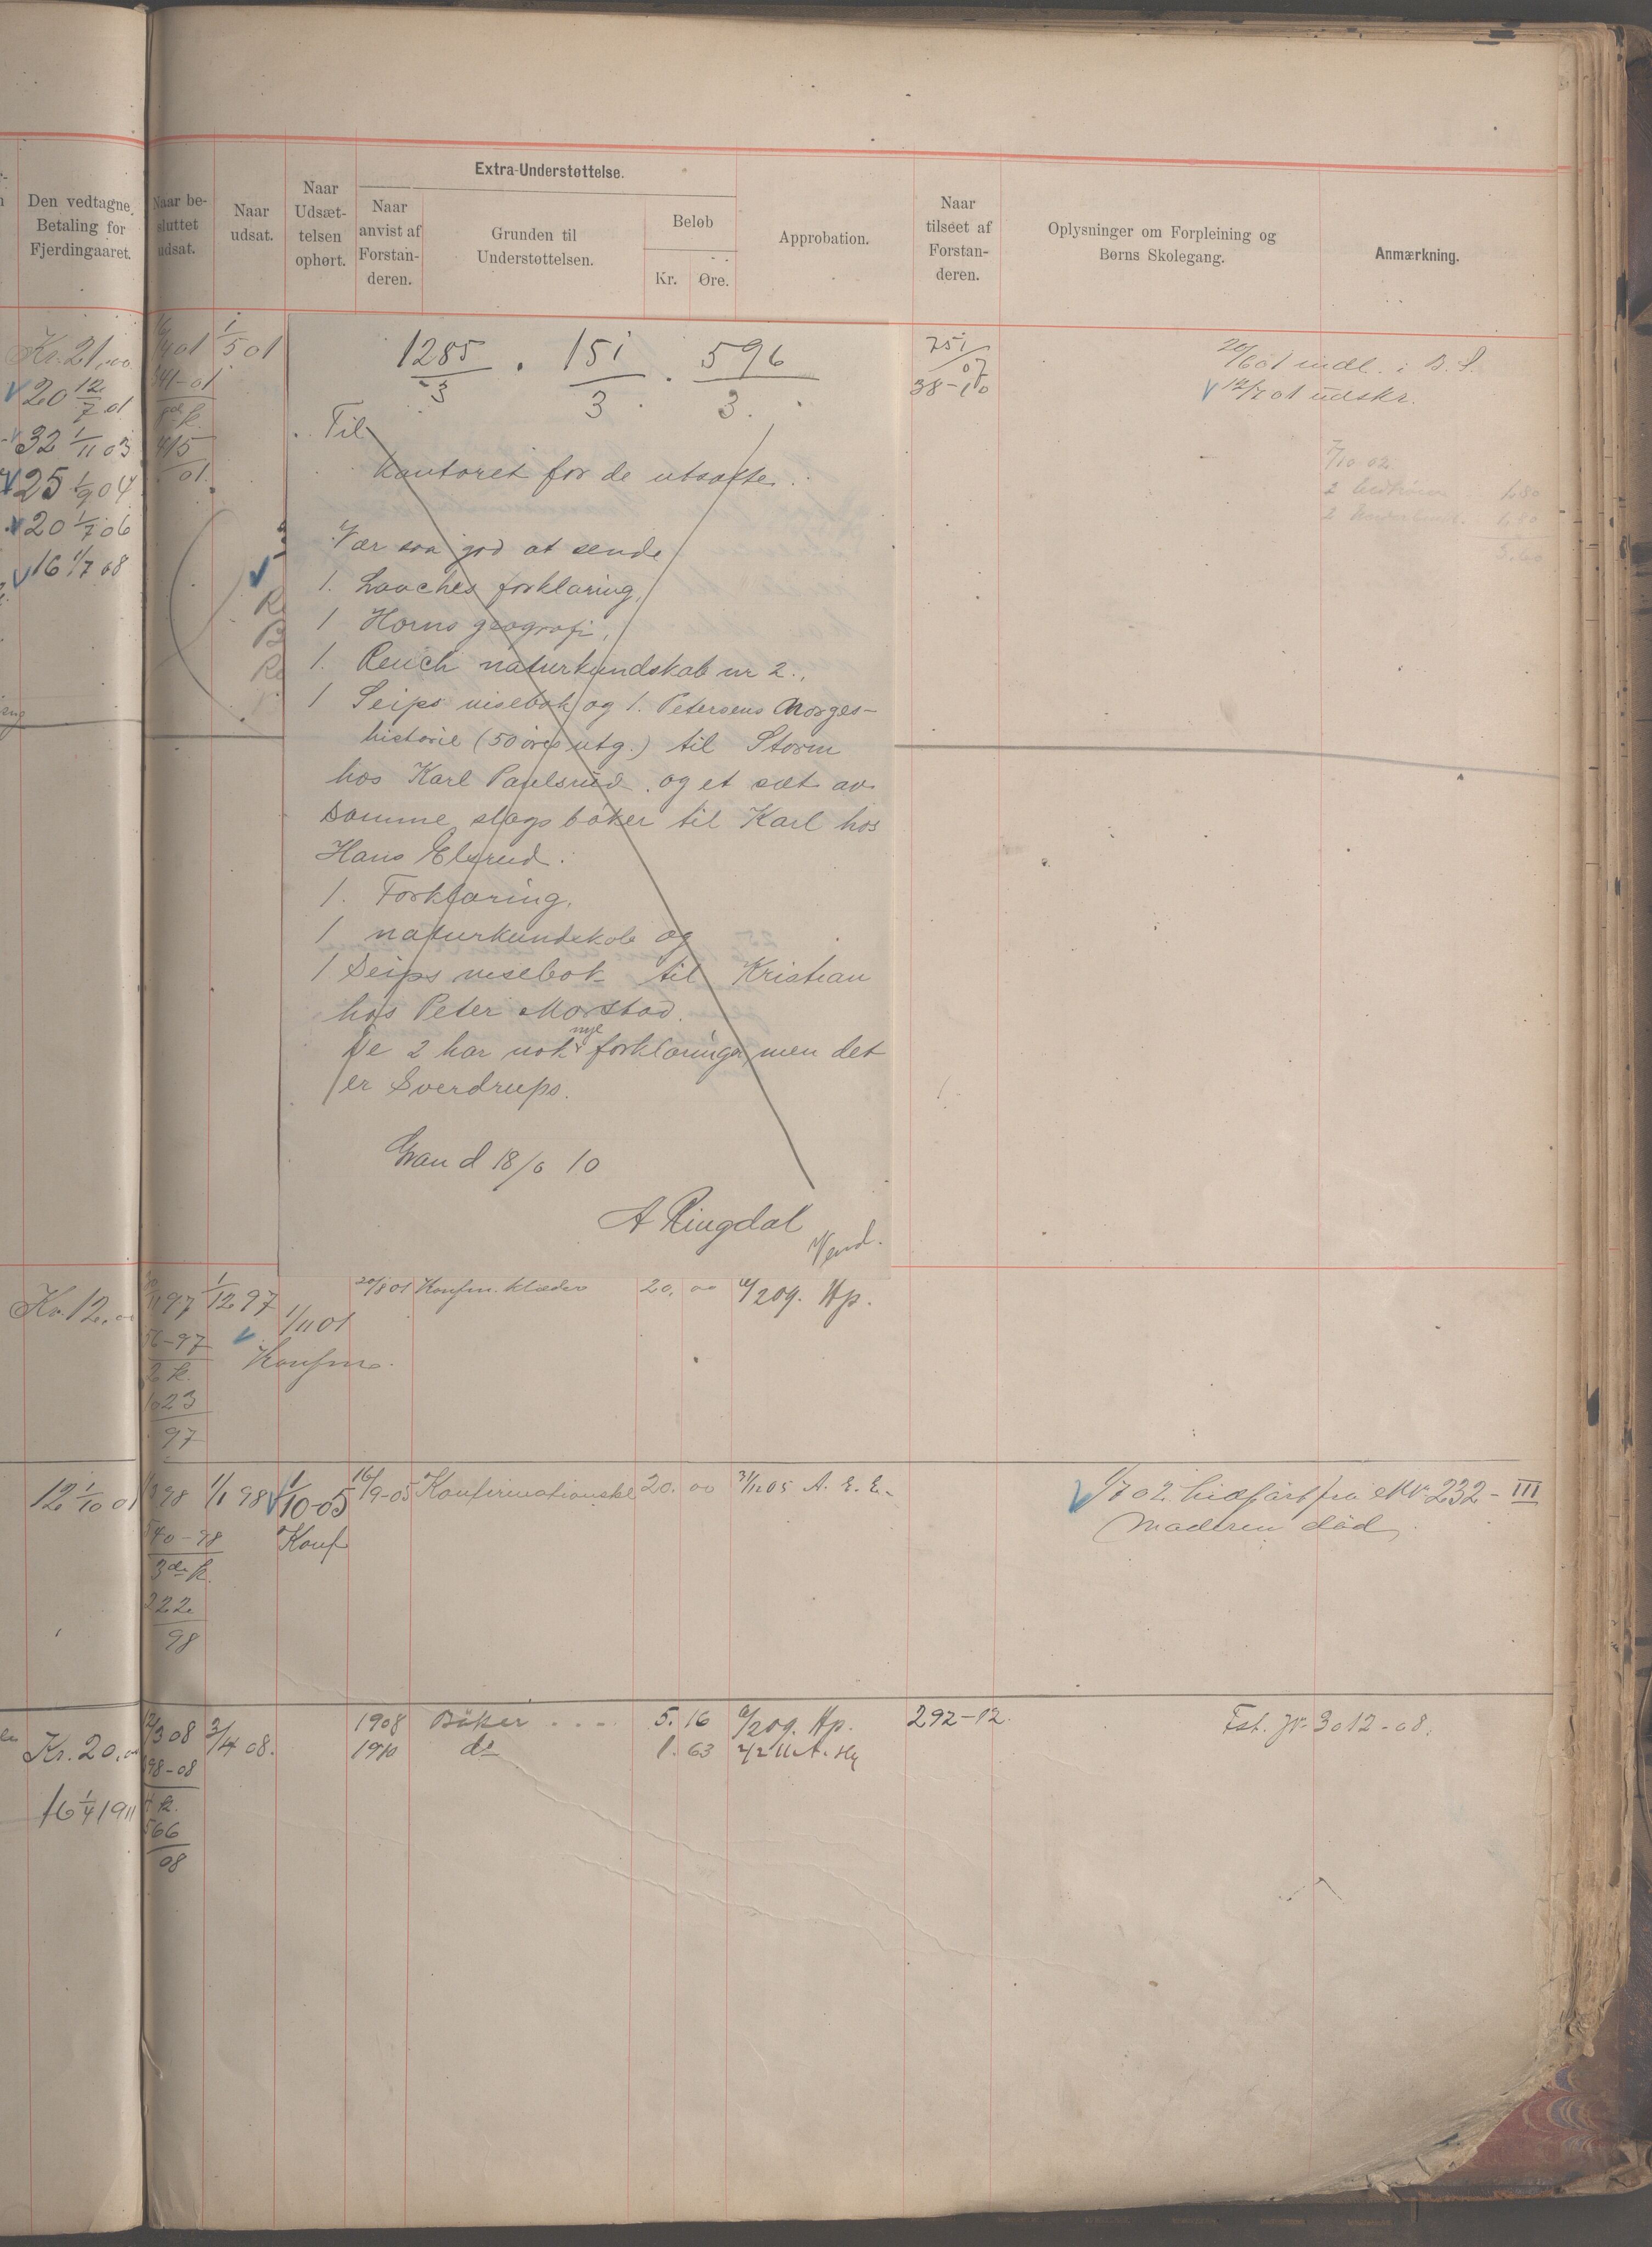 Den vedtagne
Betaling for
Fjerdingaaret.
Naar be-
sluttet
udsat.
Naar
udsat.
Naar
Udsæt-
telsen
ophørt.
Extra-Understøttelse.
Naar
anvist af
Forstan-
deren.
Grunden til
Understøttelsen.
Beløb
Kr. Øre.
Approbation.
Naar
tilseet af
Forstan-
deren.
Oplysninger om Forpleining og
Børns Skolegang.
Anmærkning.
Kr. 21,00
20 12/7 01
32 1/11 03
25 1/9 04
20 1/7 06
16 1/7 08
41-01
415
01
1/5 01
1285/3 . 151/3 . 596/3.
Til
Kontoret for de utsatte.
Vær saa god at sende
1. Laaches forklaring,
1 Horns geografi,
1. Reuch naturkundskab nr 2.,
1 Seips visebok og 1. Petersens Norges-
historie (50 øres utg.) til Storm
hos Karl Paulsrud. og et sæt av
samme slags bøker til Karl hos
Hans Elsrud.
1. Forklaring,
1 naturkundskab og
1 Seips visebok til Kristian
hos Peter Morstad.
De 2 har nok nye forklaringer, men det
er Sverdrups.
Gran d 18/6 10
A Ringdal
Vend.
751/07
38-10
20/6 01 indl. i B. S.
12/7 01 udskr.
7/10 02
Kr. 12,00
97
56-97
2 k.
1023
97
1/12 97
1/11 01
Konfm.
20/8 01 Konfm. klæder 20, 00 6/2 09. Hp.
12 1/10 01
98
540-98
3die k.
222
98
1/1 98
1/10-05
Konf
16/9-05 Konfirmationskl 20. 00 31/12 05 A. E. E.
1/7 02 hidført fra M Nr. 232 - III
Moderen død
Kr. 20,00
16 1/4 1911
12/3 08
98-08
k.
566
08
2/4 08.
1908 Bøker . . . . 5. 16 6/2 09. Hp. 292-12. Fst. Jr. 3012-08.
1910 do 1. 63